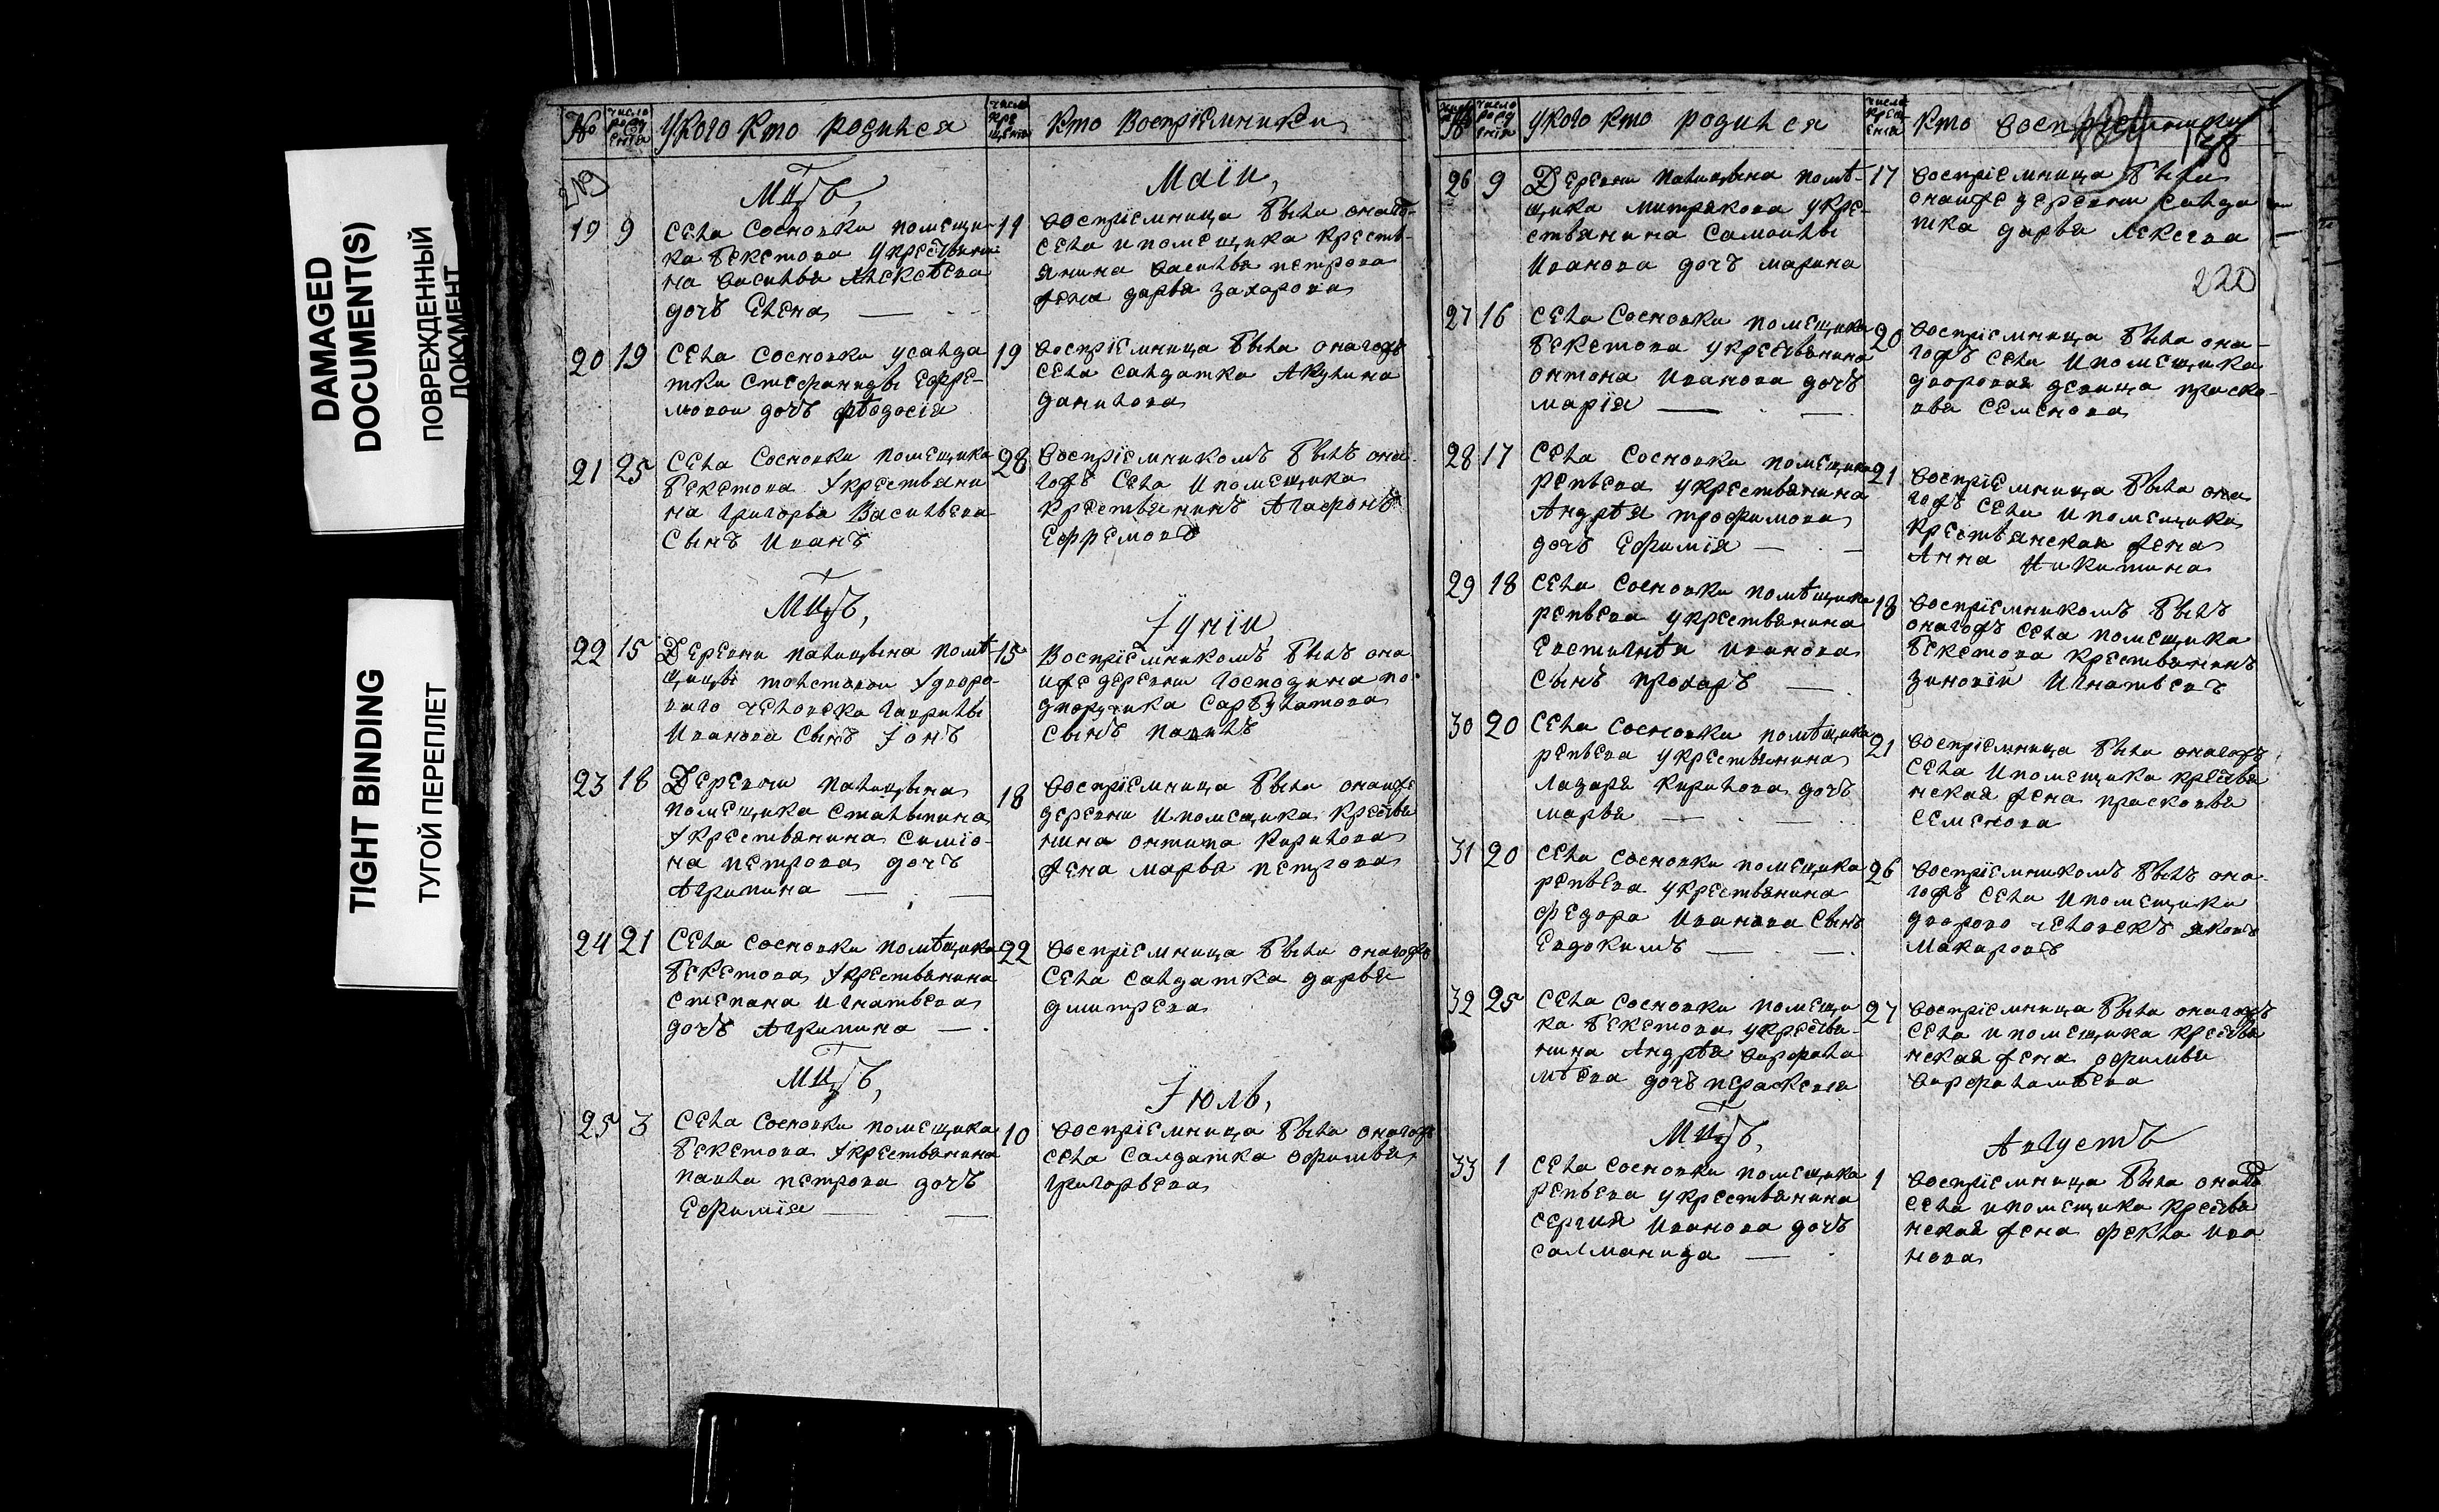 DAMAGED
DOCUMENT(S)
ПОВРЕЖДЕННЫЙ
ДОКУМЕНТ
TIGHT BINDING
ТУГОЙ ПЕРЕПЛЕТ
№
число рождения
Укого кто родился
число крещения
кто восприемники
219
Мцъ,
Маiи,
19
9
села Сосновки помещи-
ка бекетова Укрестьяни
на васильа Алексѣева
дочь Елена
11
восприемница была онаго-
села ипомещика крестъ-
янина василья петрова
жена дарья захарова
20
19
села Сосновки усалда
тки Стефаниды Ефре-
мовои дочь фѣодосiя
19
восприемница была онагожъ
села салдатка Акулина
данилова
21
25
села Сосновки помещика
бекетова Укрестьяни
на григорья Васильева
сынъ иванъ
28
восприемникомъ былъ она
гожъ села ипомещика
крестьянинъ Агафонъ
Ефремовъ
Мцъ,
Iунiи
22
15
Деревни палицына помѣ-
щицы толстовои Удворо-
ваго человека гаврилы
Иванова сынъ Iонъ
15
Восприемникомъ былъ она
иже деревни господина по-
дпоручика сарбулатова
сынъ павелъ
23
18
Деревни палицына
помещика Сталыпина
Укрестьянина симiо-
на петрова дочъ
Агрипина
18
восприемница была онаиже
деревни ипомещика крестья
нина онтипа кирилова
жена марья петрова
24
21
Села сосновки помѣщика
бекетова Укрестьянина
степана игнатьева
дочь Агрипина
22
восприемница была онагожъ
села салдатка дарья
дмитрева
Мцъ,
Iюль,
25
3
Села Сосновки помещика
бекетова Укрестьянина
павла петрова дочь
Ефимiя
10
восприемница была онагожъ
села салдатка офимья
григорьева
№
число рождения
укого кто родился
число крещения
кто восприемники
138
220
26
9
Деревни палицына помѣ-
щика митрекова укре-
стьянина самоилы
иванова дочъ марина
17
восприемница была
онаиже деревни салда
тка дарья Лексева
27
16
села Сосновки помещика
бекетова укрестьянина
онтона иванова дочъ
марiя
20
восприемница была она-
гожъ села ипомещика
дворовая девица праско-
вья семенова
28
17
села сосновки помещика
репьева укрестьянина
Андрѣя трофимова
дочъ Ефимiя
21
восприемница была она
гожъ села ипомещика
крестьянская жена
Анна Никитина
29
18
села Сосновки помѣщика
репьева укрестьянина
Евстигнѣи иванова
сынъ прохаръ
18
восприемникомъ былъ
онагожъ села помещика
бекетова крестьянинъ
зиновiи игнатьевъ
30
20
села Сосновки помѣщика
репьева укрестьянина
лазаря кирилова дочъ
марья
21
восприемница была онагожъ
села ипомещика крестья
нская жена прасковья
семенова
31
20
села сосновки помещика
репьева укрестьянина
федора иванова сынъ
Евдокимъ
26
восприемникомъ былъ она-
гожъ села ипомещика
дворово человекъ яковъ
макаровъ
32
25
села сосновки помещи
ка бекетова укрестья-
нина Андрѣя варфала
мѣева дочъ параскева
27
восприемница была онагожъ
села ипомещика крестья
нская жена офимья
варфаламѣева
Мцъ,
Августъ
33
1
села сосновки помещика
репьева укрестьянина
сергия иванова дочъ
саломанида
1
восприемница была онагожъ
села ипомещика крестья
нская жена фекла ива
нова